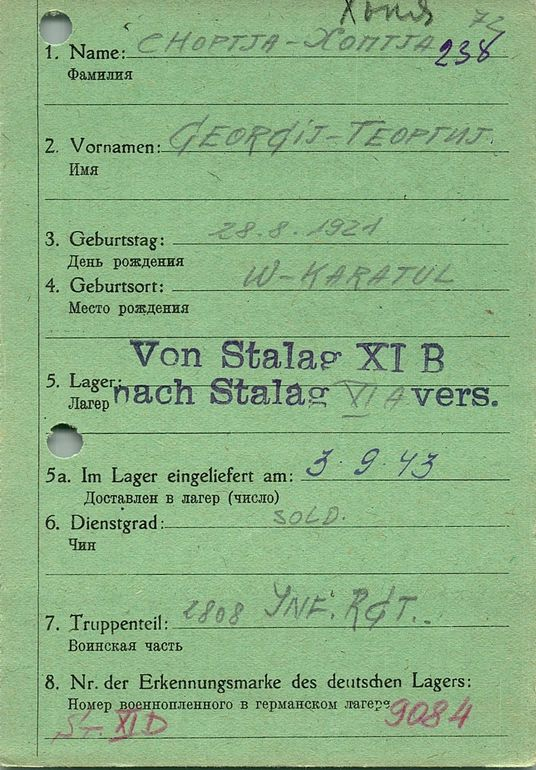 Хыня 72
1. Name: CHOPTJA-ХОПТJА 238
Фамилия
2. Vornamen: GEORGIJ-ГЕОРГИЈ.
Имя
3. Geburtstag: 28.8.1921
День рождения
4. Geburtsort: W-KARATUL
Место рождения
Von Stalag XI B
5. Lager: nach Stalag VI A vers.
Лагер
5a. Im Lager eingeliefert am: 3.9.43
Доставлен в лагер (число)
6. Dienstgrad: SOLD.
Чин
7. Truppenteil: 2808 INF. RGT.
Воинская часть
8. Nr. der Erkennungsmarke des deutschen Lagers:
Номер военнопленного в германском лагере 9084
St. XI D